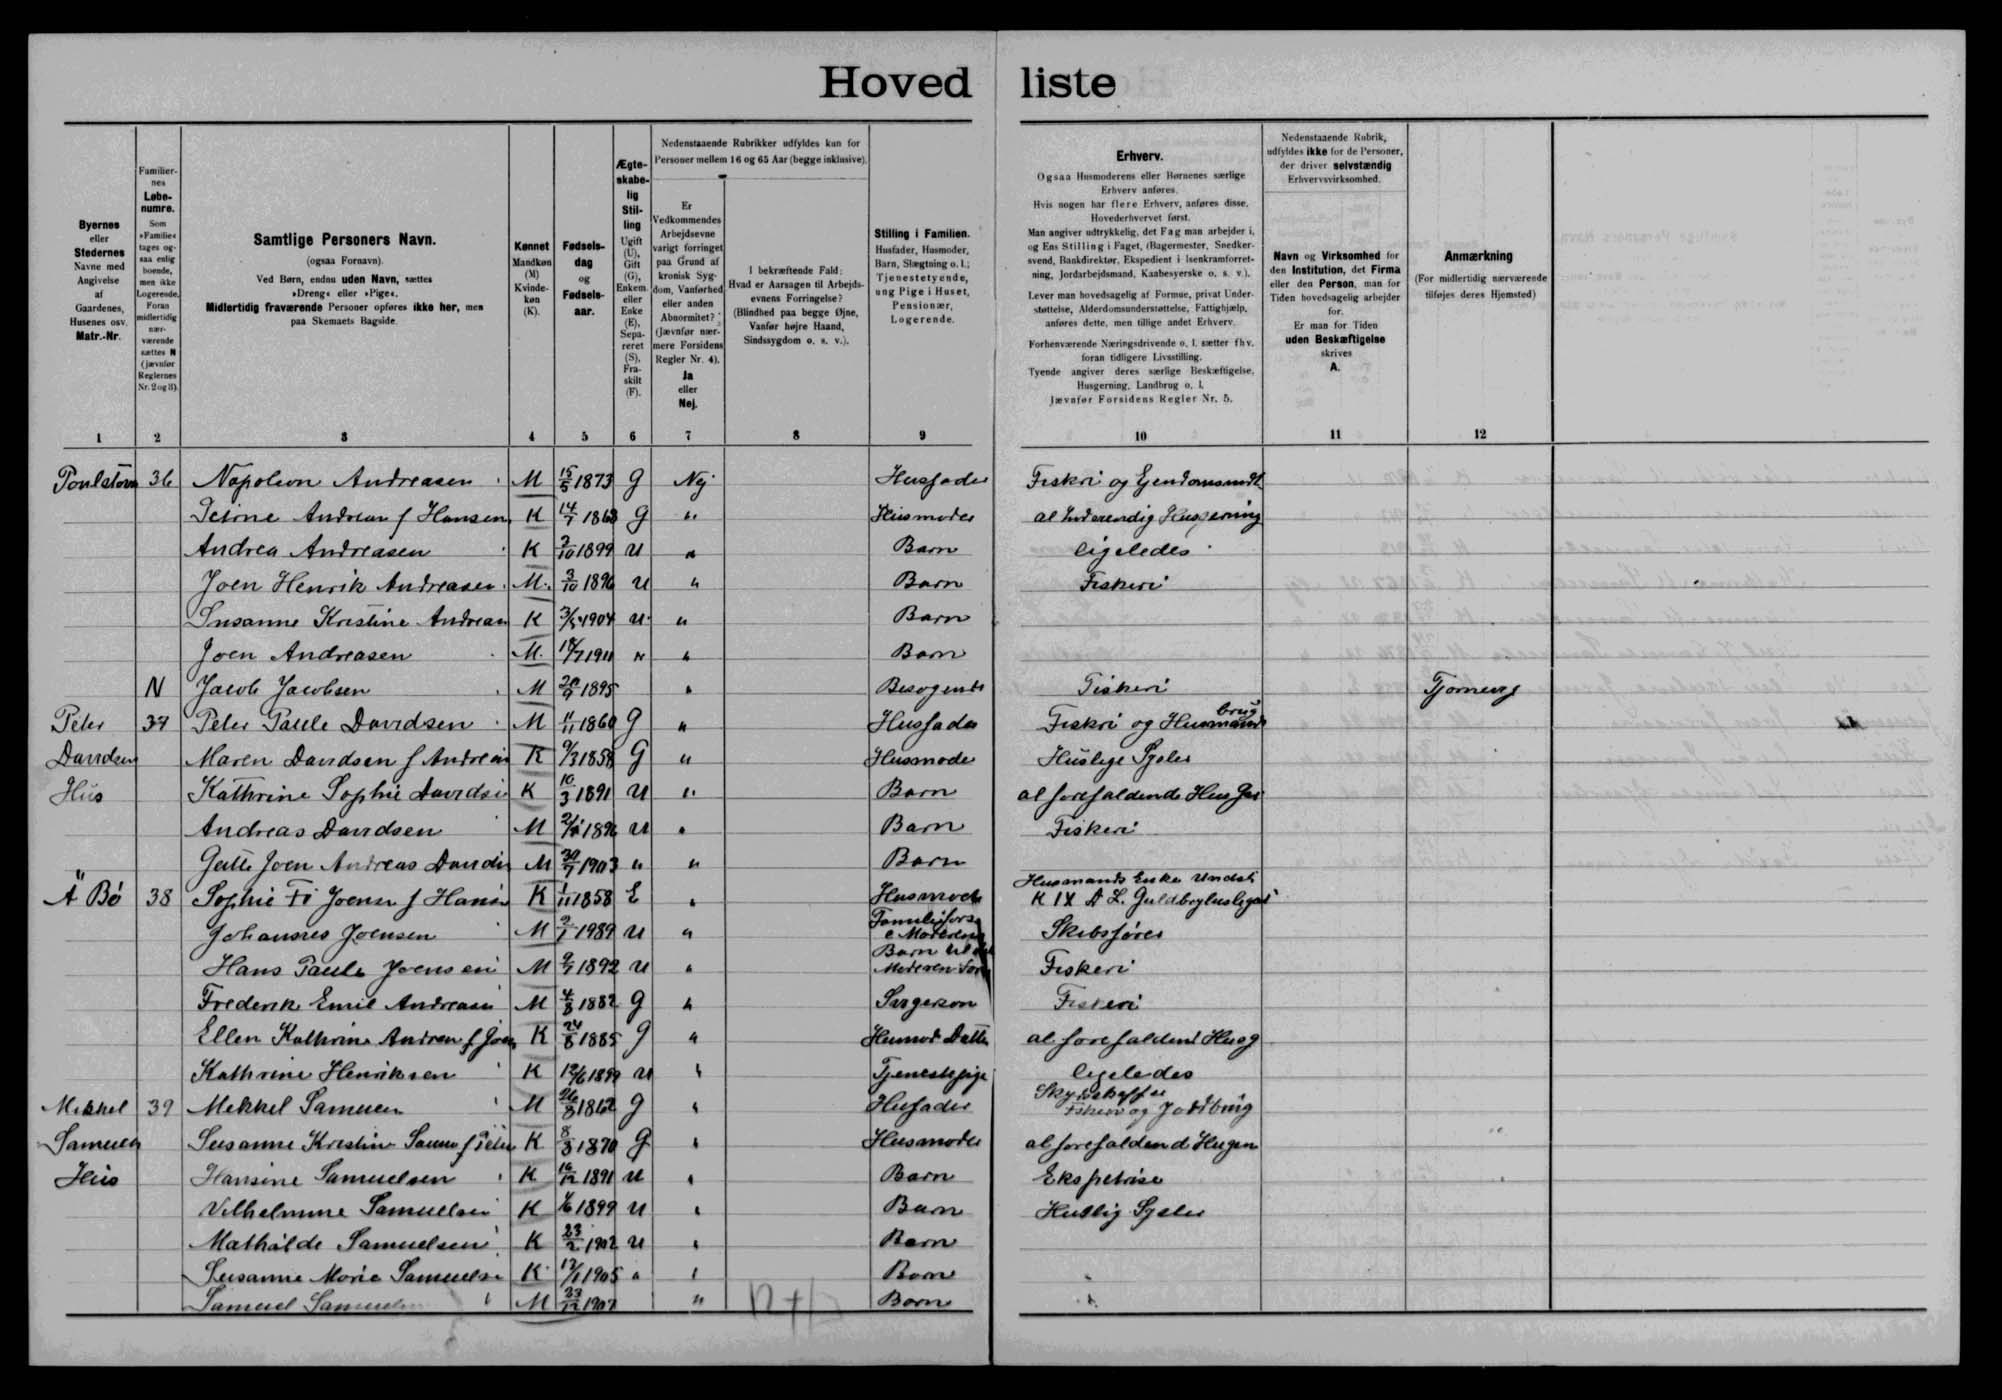 Hoved liste
Byernes eller Stedernes Navne med Angivelse af Gaardenes, Husenes osv. Matr.-Nr.
Familiernes Løbenumre. Som »Familie« tages ogsaa enlig boende, men ikke Logerende. Foran midlertidig nærværende sættes N (jævnfør Reglernes Nr. 2 og 3).
Samtlige Personers Navn.
(ogsaa Fornavn).
Ved Børn, endnu uden Navn, sættes »Dreng« eller »Pige«.
Midlertidig fraværende Personer opføres ikke her, men paa Skemaets Bagside.
Kønnet Mandkøn (M) Kvindekøn (K).
Fødselsdag og Fødselsaar.
Ægteskabelig Stilling Ugift (U), Gift (G), Enkem. eller Enke (E), Separeret (S), Fraskilt (F).
Nedenstaaende Rubrikker udfyldes kun for Personer mellem 16 og 65 Aar (begge inklusive).
Er Vedkommendes Arbejdsevne varigt forringet paa Grund af kronisk Sygdom, Vanførhed eller anden Abnormitet? (Jævnfør nærmere Forsidens Regler Nr. 4). Ja eller Nej.
I bekræftende Fald: Hvad er Aarsagen til Arbejdsevnens Forringelse? (Blindhed paa begge Øjne, Vanfør højre Haand, Sindssygdom o. s. v.).
Stilling i Familien. Husfader, Husmoder, Barn, Slægtning o. l.; Tjenestetyende, ung Pige i Huset, Pensionær, Logerende.
Erhverv.
Ogsaa Husmoderens eller Børnenes særlige Erhverv anføres.
Hvis nogen har flere Erhverv, anføres disse, Hovederhvervet først.
Man angiver udtrykkelig, det Fag man arbejder i, og Ens Stilling i Faget, (Bagermester, Snedkersvend, Bankdirektør, Ekspedient i Isenkramforretning, Jordarbejdsmand, Kaabesyerske o. s. v.).
Lever man hovedsagelig af Formue, privat Understøttelse, Alderdomsunderstøttelse, Fattighjælp, anføres dette, men tillige andet Erhverv.
Forhenværende Næringsdrivende o. l. sætter fhv. foran tidligere Livsstilling.
Tyende angiver deres særlige Beskæftigelse, Husgerning, Landbrug o. l.
Jævnfør Forsidens Regler Nr. 5.
Nedenstaaende Rubrik, udfyldes ikke for de Personer, der driver selvstændig Erhvervsvirksomhed.
Navn og Virksomhed for den Institution, det Firma eller den Person, man for Tiden hovedsagelig arbejder for.
Er man for Tiden uden Beskæftigelse skrives A.
Anmærkning
(For midlertidig nærværende tilføjes deres Hjemsted)
1 2 3 4 5 6 7 8 9 10 11 12
36 Napoleon Andreasen M 15/5 1873 G Nej Husfader Fiskri og
Andreasen f Hansen K 14/7 1868 G " Husmoder
Andrea Andreasen K 2/10 1899 U " Barn ligeledes
Joen Henrik Andreasen M. 3/10 1896 U " Barn Fiskeri
Susanne Kristine Andreasen K 1904 U " Barn
Joen Andreasen M. 1911 " " Barn
N Jacob Jacobsen M 1895 " Besøgende Fiskeri Tjørnevig
Peter 37 Peter Paule Davidsen M 11/11 1860 G " Husfader Fiskri og Husmandsbrug
Davidsen Maren Davidsen f K 1858 G " Husmoder Huslige Sysler
Hus Kathrine Sophie Davidsen K 10/3 1891 U " Barn al forefaldende Husger
Andreas Davidsen M 1896 U " Barn Fiskeri
Joen Andreas Davidsen M 1903 " " Barn
Á Bø 38 Sophie Joensen f Hansen K 1/11 1858 E " Husmoder Husmands Enke
Johannes Joensen M 2/1 1989 U " Skibsfører
Hans Paule Joensen M 1892 U " Barn Fiskeri
Frederik Emil Andreasen M 4/8 1882 G " Svigersøn Fiskeri
Ellen Kathrine Andreasen f Joensen K 24/8 1885 G " Datter al forefaldend Husg
Kathrine Henriksen K 12/6 1899 U " Tjenestepige ligeledes
Mekkel 39 Mekkel Samuelsen M 26/8 1862 G " Husfader Skydsskaffer Fiskeri og Jordbrug
Samuelsen Susanne Kristine K 8/3 1870 G " Husmoder al forefaldend
Hus Hansine Samuelsen K 16/12 1891 U " Barn
Vilhelmine Samuelsen K 1899 U " Barn Huslig Sysler
Mathilde Samuelsen K 23/2 1902 U " Barn
Susanne Marie Samuelsen K 12/1 1905 " " Barn
Samuel Samuelsen M 23/12 1907 " Barn